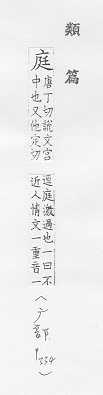 類篇
庭
唐丁切說文宮
中也又他定切
逕庭激過也一曰不
近人情文一重音一
(广部下 P.334)